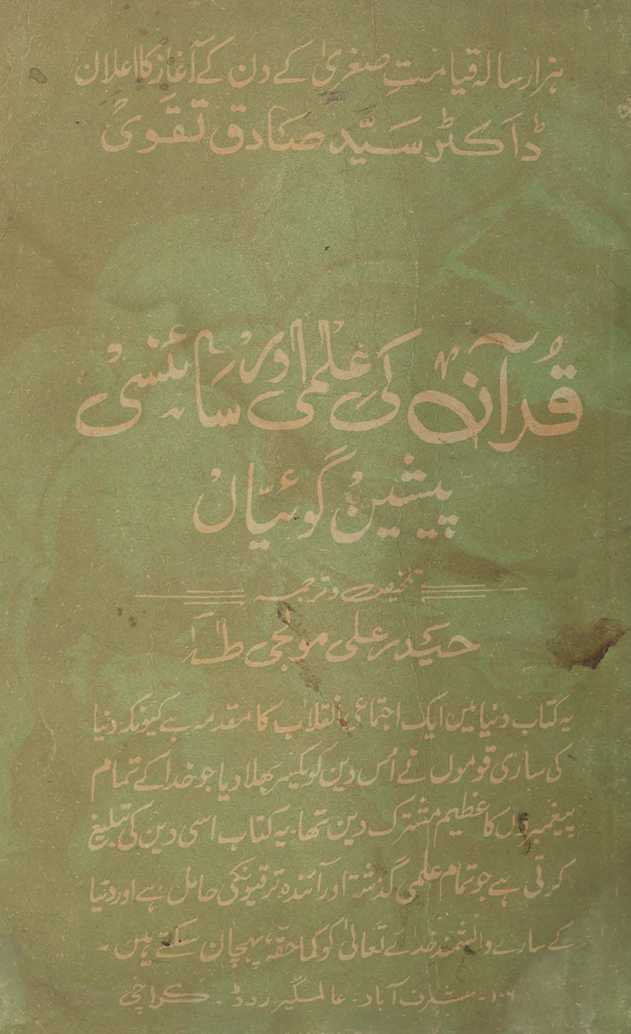 ہزار سالہ قیامتِ صغریٰ کے دن کے آغاز کا اعلان
ڈاکٹر سیّد صادق تقوی
قرآن کی علمی اور سائنسی
پیشین گوئیاں
تلخیص و ترجمہ
حیدر علی مولجی طٰہٰ
یہ کتاب دنیا میں ایک اجتماعی انقلاب کا مقدمہ ہے کیونکہ دنیا
کی ساری قوموں نے اُس دین کو یکسر بھلا دیا جو خدا کے تمام
پیغمبروں کا عظیم مشترک دین تھا۔ یہ کتاب اسی دین کی تبلیغ
کرتی ہے جو تمام علمی گذشتہ اور آئندہ ترقیوں کی حامل ہے اور دنیا
کے سارے دانشمند خدائے تعالیٰ کو کماحقہٗ پہچان سکتے ہیں۔
۱۰۶۔ شرف آباد۔ عالمگیر روڈ۔ کراچی